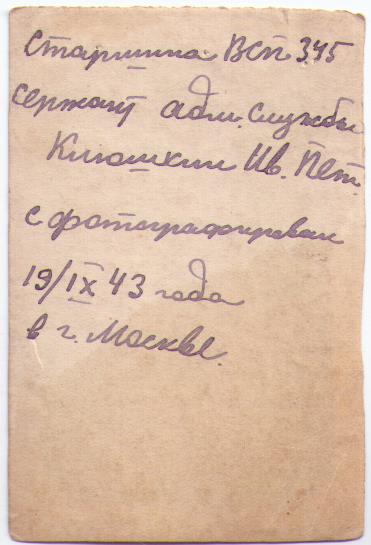 Старшина ВСП 345
сержант адм. службы
Клюшкин Ив. Пет.
сфотографирован
19/IX 43 года
в г. Москве.